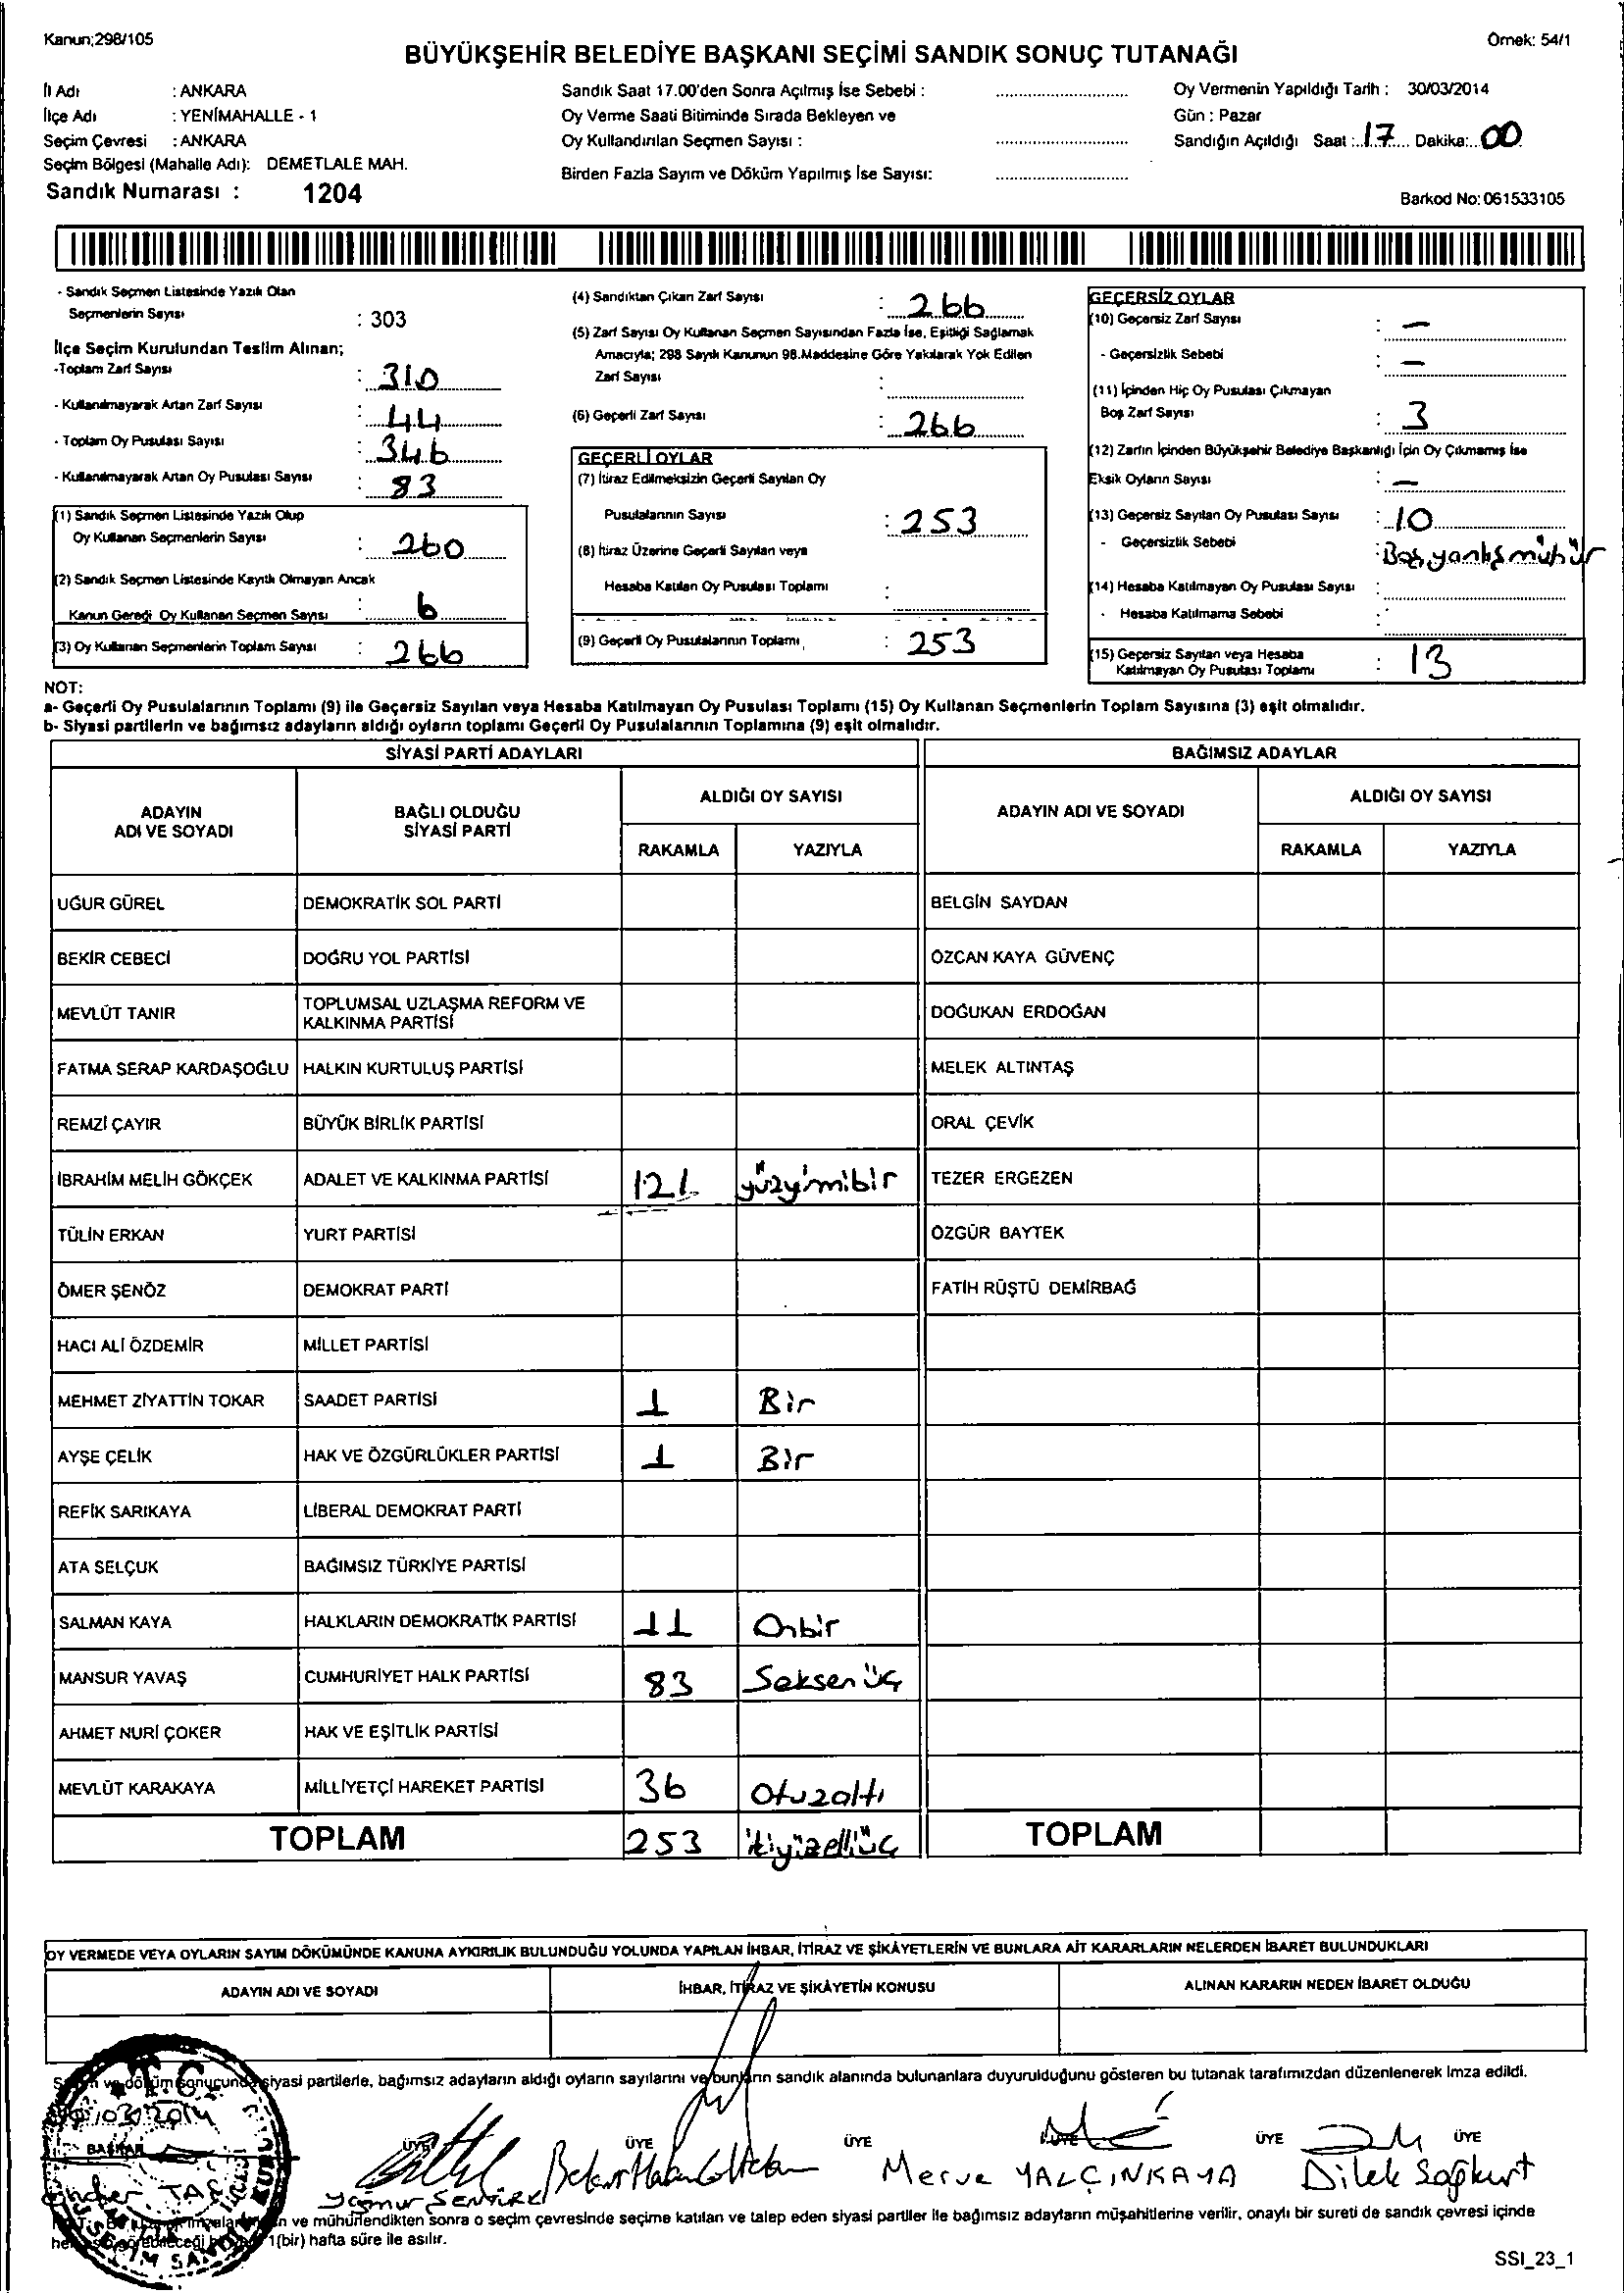 Kanun;298/105
Örnek: 54/1
BÜYÜKŞEHİR BELEDİYE BAŞKANI SEÇİMİ SANDIK SONUÇ TUTANAĞI
İl Adı : ANKARA
İlçe Adı : YENİMAHALLE - 1
Seçim Çevresi : ANKARA
Seçim Bölgesi (Mahalle Adı): DEMETLALE MAH.
Sandık Numarası : 1204
Sandık Saat 17.00'den Sonra Açılmış İse Sebebi :
Oy Verme Saati Bitiminde Sırada Bekleyen ve
Oy Kullandırılan Seçmen Sayısı :
Birden Fazla Sayım ve Döküm Yapılmış İse Sayısı:
Oy Vermenin Yapıldığı Tarih : 30/03/2014
Gün : Pazar
Sandığın Açıldığı Saat : 17 Dakika: 00
Barkod No: 061533105
- Sandık Seçmen Listesinde Yazılı Olan
Seçmenlerin Sayısı : 303
İlçe Seçim Kurulundan Teslim Alınan;
-Toplam Zarf Sayısı : 310
- Kullanılmayarak Artan Zarf Sayısı : 44
- Toplam Oy Pusulası Sayısı : 346
- Kullanılmayarak Artan Oy Pusulası Sayısı : 83
(1) Sandık Seçmen Listesinde Yazılı Olup
Oy Kullanan Seçmenlerin Sayısı : 260
(2) Sandık Seçmen Listesinde Kayıtlı Olmayan Ancak
Kanun Gereği Oy Kullanan Seçmen Sayısı : 6
(3) Oy Kullanan Seçmenlerin Toplam Sayısı : 266
(4) Sandıktan Çıkan Zarf Sayısı : 266
(5) Zarf Sayısı Oy Kullanan Seçmen Sayısından Fazla İse, Eşitliği Sağlamak
Amacıyla; 298 Sayılı Kanunun 98.Maddesine Göre Yakılarak Yok Edilen
Zarf Sayısı :
(6) Geçerli Zarf Sayısı : 266
GEÇERLİ OYLAR
(7) İtiraz Edilmeksizin Geçerli Sayılan Oy
Pusulalarının Sayısı : 253
(8) İtiraz Üzerine Geçerli Sayılan veya
Hesaba Katılan Oy Pusulası Toplamı :
(9) Geçerli Oy Pusulalarının Toplamı : 253
GEÇERSİZ OYLAR
(10) Geçersiz Zarf Sayısı : —
- Geçersizlik Sebebi : —
(11) İçinden Hiç Oy Pusulası Çıkmayan
Boş Zarf Sayısı : 3
(12) Zarfın İçinden Büyükşehir Belediye Başkanlığı İçin Oy Çıkmamış İse
Eksik Oyların Sayısı : —
(13) Geçersiz Sayılan Oy Pusulası Sayısı : 10
- Geçersizlik Sebebi : Boş, yanlış mühür
(14) Hesaba Katılmayan Oy Pusulası Sayısı :
- Hesaba Katılmama Sebebi :
(15) Geçersiz Sayılan veya Hesaba
Katılmayan Oy Pusulası Toplamı : 13
NOT:
a- Geçerli Oy Pusulalarının Toplamı (9) ile Geçersiz Sayılan veya Hesaba Katılmayan Oy Pusulası Toplamı (15) Oy Kullanan Seçmenlerin Toplam Sayısına (3) eşit olmalıdır.
b- Siyasi partilerin ve bağımsız adayların aldığı oyların toplamı Geçerli Oy Pusulalarının Toplamına (9) eşit olmalıdır.
SİYASİ PARTİ ADAYLARI BAĞIMSIZ ADAYLAR
ADAYIN ADI VE SOYADI BAĞLI OLDUĞU SİYASİ PARTİ ALDIĞI OY SAYISI ADAYIN ADI VE SOYADI ALDIĞI OY SAYISI
RAKAMLA YAZIYLA RAKAMLA YAZIYLA
UĞUR GÜREL DEMOKRATİK SOL PARTİ BELGİN SAYDAN
BEKİR CEBECİ DOĞRU YOL PARTİSİ ÖZCAN KAYA GÜVENÇ
MEVLÜT TANIR TOPLUMSAL UZLAŞMA REFORM VE KALKINMA PARTİSİ DOĞUKAN ERDOĞAN
FATMA SERAP KARDAŞOĞLU HALKIN KURTULUŞ PARTİSİ MELEK ALTINTAŞ
REMZİ ÇAYIR BÜYÜK BİRLİK PARTİSİ ORAL ÇEVİK
İBRAHİM MELİH GÖKÇEK ADALET VE KALKINMA PARTİSİ 121 yüzyimibir TEZER ERGEZEN
TÜLİN ERKAN YURT PARTİSİ ÖZGÜR BAYTEK
ÖMER ŞENÖZ DEMOKRAT PARTİ FATİH RÜŞTÜ DEMİRBAĞ
HACI ALİ ÖZDEMİR MİLLET PARTİSİ
MEHMET ZİYATTİN TOKAR SAADET PARTİSİ 1 Bir
AYŞE ÇELİK HAK VE ÖZGÜRLÜKLER PARTİSİ 1 Bir
REFİK SARIKAYA LİBERAL DEMOKRAT PARTİ
ATA SELÇUK BAĞIMSIZ TÜRKİYE PARTİSİ
SALMAN KAYA HALKLARIN DEMOKRATİK PARTİSİ 11 Onbir
MANSUR YAVAŞ CUMHURİYET HALK PARTİSİ 83 Seksen üç
AHMET NURİ ÇOKER HAK VE EŞİTLİK PARTİSİ
MEVLÜT KARAKAYA MİLLİYETÇİ HAREKET PARTİSİ 36 Otuzaltı
TOPLAM 253 ikiyüzelliüç TOPLAM
OY VERMEDE VEYA OYLARIN SAYIM DÖKÜMÜNDE KANUNA AYKIRILIK BULUNDUĞU YOLUNDA YAPILAN İHBAR, İTİRAZ VE ŞİKÂYETLERİN VE BUNLARA AİT KARARLARIN NELERDEN İBARET BULUNDUKLARI
ADAYIN ADI VE SOYADI İHBAR, İTİRAZ VE ŞİKÂYETİN KONUSU ALINAN KARARIN NEDEN İBARET OLDUĞU
Sayım ve döküm sonucunda siyasi partilerle, bağımsız adayların aldığı oyların sayılarını ve bunların sandık alanında bulunanlara duyurulduğunu gösteren bu tutanak tarafımızdan düzenlenerek imza edildi.
T.C.
BAŞKAN ÜYE ÜYE ÜYE ÜYE ÜYE ÜYE
Merve YALÇINKAYA Dilek Sağkurt
Yağmur ŞENTÜRK
ve mühürlendikten sonra o seçim çevresinde seçime katılan ve talep eden siyasi partiler ile bağımsız adayların müşahitlerine verilir, onaylı bir sureti de sandık çevresi içinde
1(bir) hafta süre ile asılır.
SSI_23_1